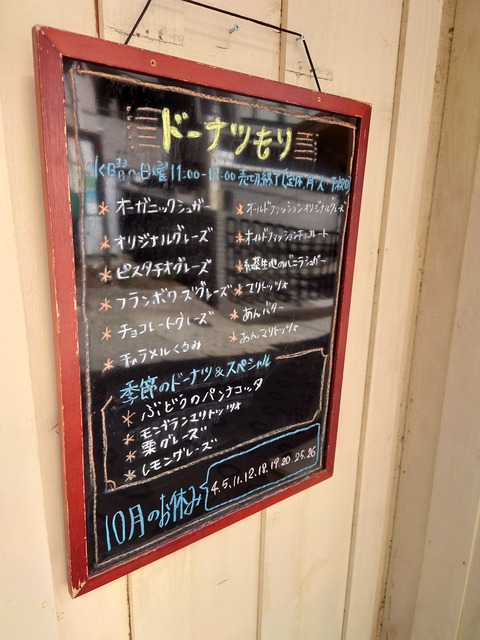 ドーナツもり
日曜 11:00-18:00 売切終了 定休 月・火
オーガニックシュガー
オリジナルグレーズ
ピスタチオグレーズ
フランボワーズグレーズ
チョコレートグレーズ
キャラメルくるみ
オールドファッションオリジナルグレーズ
オールドファッションチョコレート
紅茶生地のバニラシュガー
マリトッツォ
あんバター
あんマリトッツォ
季節のドーナツ&スペシャル
ぶどうのパンナコッタ
モンブランマリトッツォ
栗グレーズ
レモングレーズ
10月のお休み 4.5.11.12.18.19.20.25.26